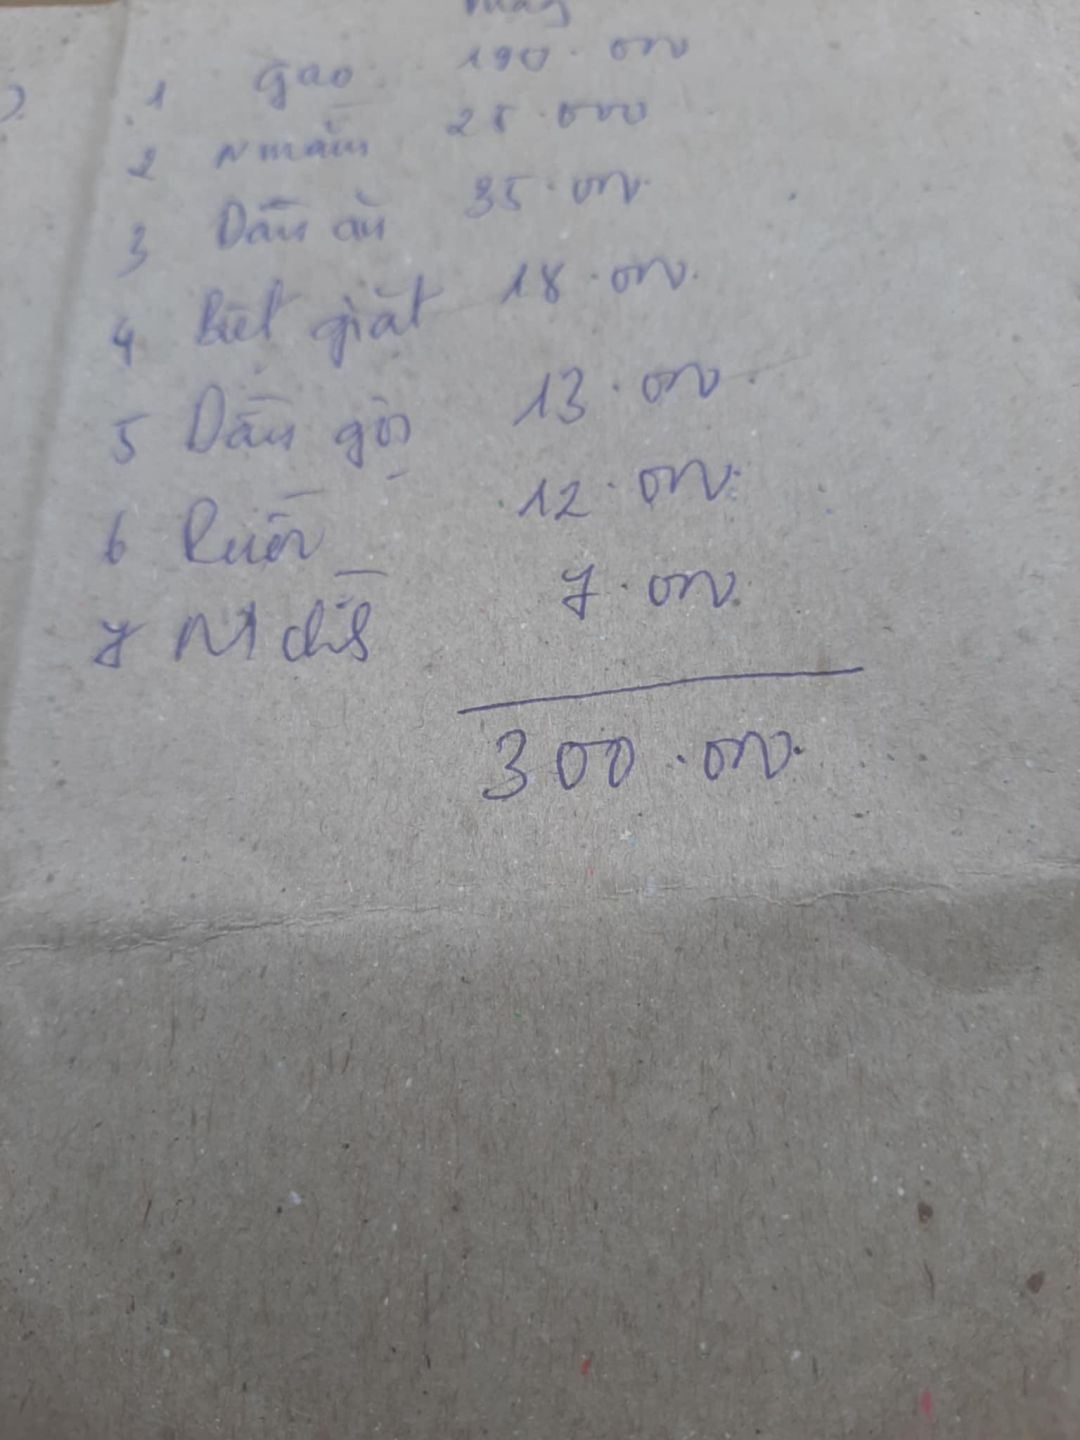 1 gạo 190.000
2 n mắm 25.000
3 Dầu ăn 35.000
4 Bột giặt 18.000
5 Dầu gội 13.000
6 Rượu 12.000
7 7.000
300.000